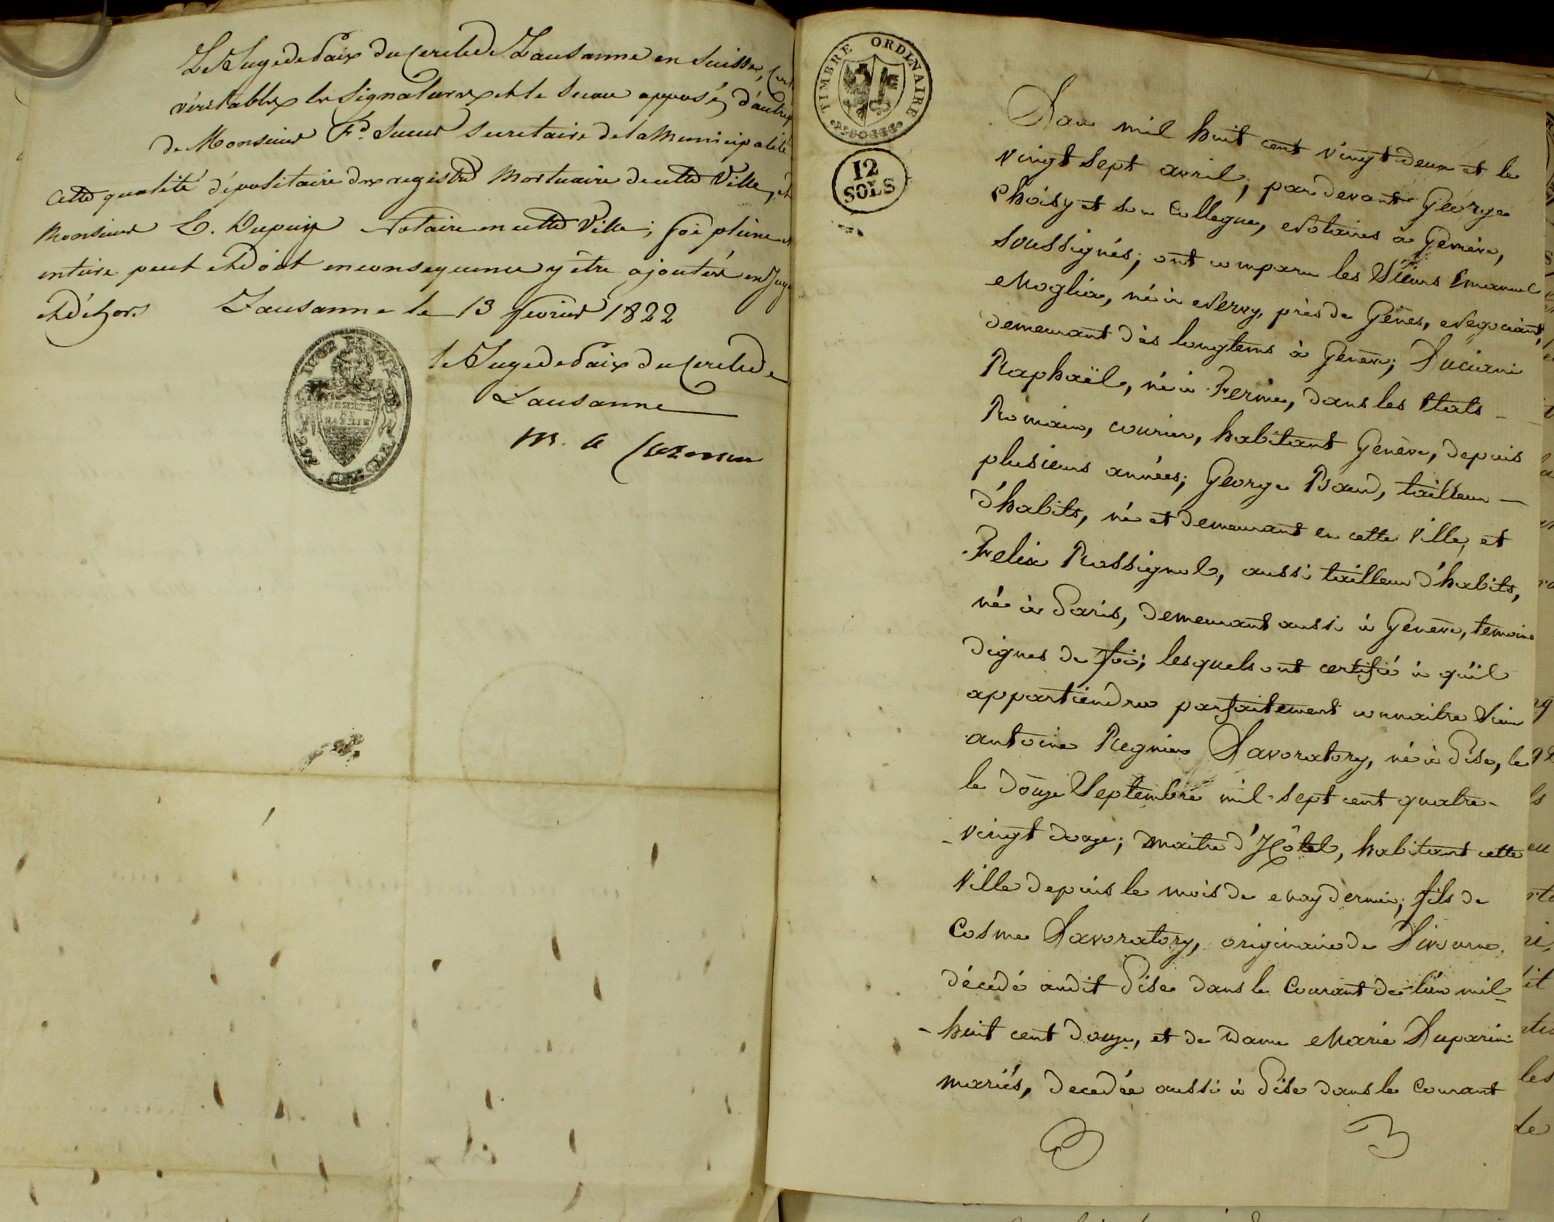 Le Juge de Paix du Cercle de Lausanne en Suisse,
véritables les signatures et le sceau apposés d'autre
de Monsieur Fd. secretaire de la Municipalité
cette qualité dépositaire des registres Mortuaire de cette Ville,
Monsieur L. Dupuis Notaire en cette Ville; foi pleine et
entiere peut et doit en consequence y être ajoutée en Juge
et dehors. Lausanne le 13 février 1822
le Juge de Paix du Cercle de
Lausanne
TIMBRE ORDINAIRE
12
SOLS
L'an mil huit cent vingt deux et le
vingt sept avril, par devant George
Choisy et son Collegue, Notaires à Genève,
soussignés; ont comparu les Sieurs Emanuel
Moglia, né à Nervy, près de Gênes, Negociant,
demeurant dès longtems à Genève; Luciani
Raphaël, né à Fermo, dans les Etats
Romain, courier, habitant Genève, depuis
plusieurs années; George Baud, tailleur
d'habits, né et demeurant en cette Ville, et
Felix Rossignol, aussi tailleur d'habits,
né à Paris, demeurant aussi à Genève, temoins
dignes de foi; lesquels ont certifié à qu'il
appartiendra parfaitement connaitre Sieur
antoine Regnier Lavoratory, né à Pise, le
le douze Septembre mil sept cent quatre-
-vingt douze; Maitre d'Hôtel, habitant cette
Ville depuis le mois de May dernier, fils de
Cosme Lavoratory, originaire de Livourne,
décédé audit Pise dans le Courant de l'an mil-
-huit cent douze, et de Dame Marie Luparini
mariés, decedée aussi à Pise dans le Courant